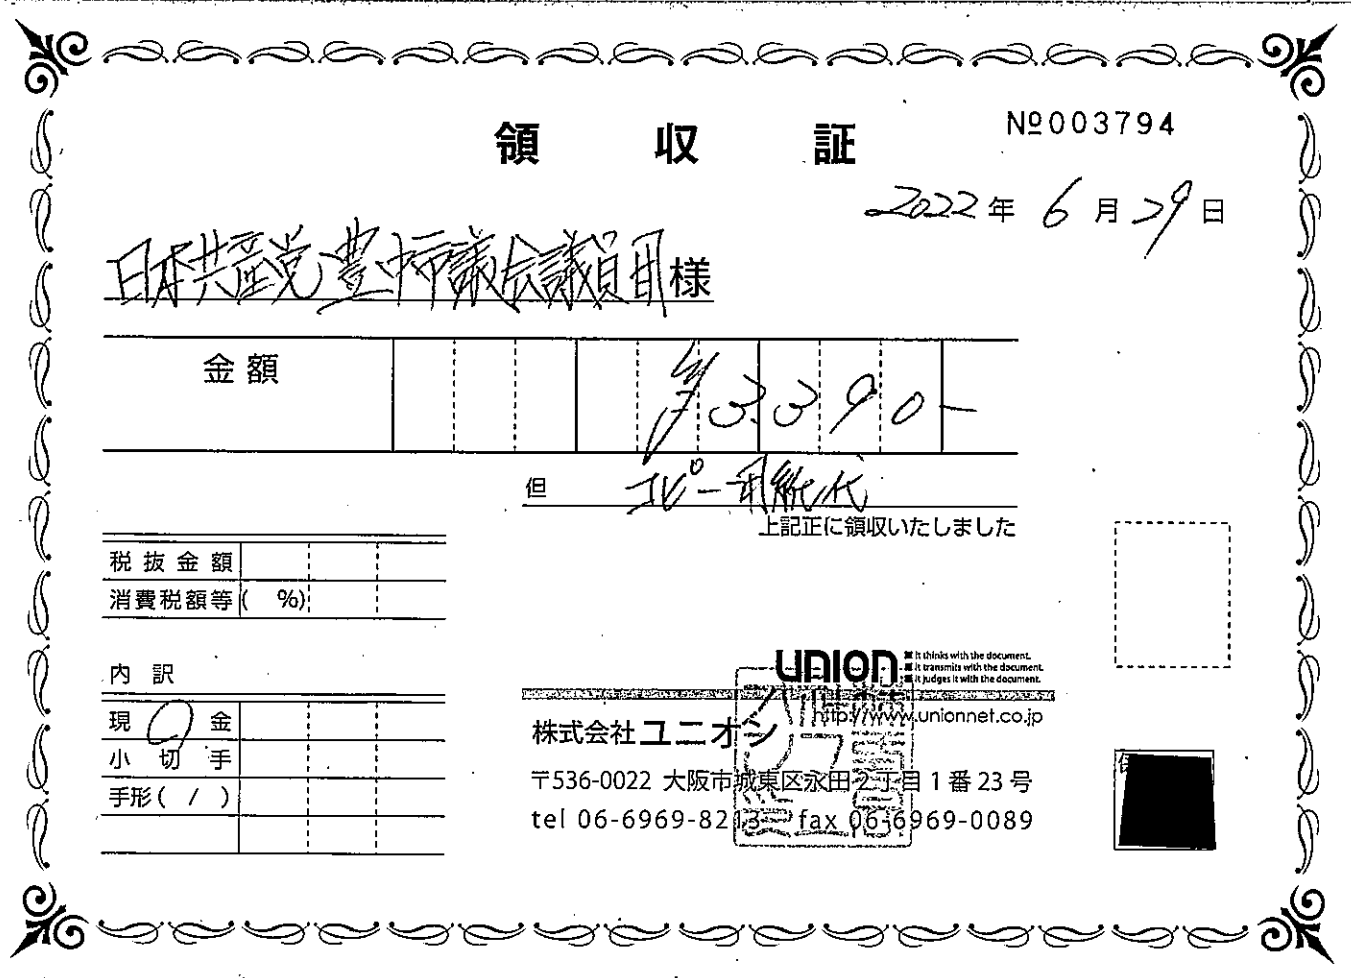 領収証
№003794
2022年6月29日
日本共産党豊中市議会議員団様
金額 ¥3,390-
但 コピー用紙代
上記正に領収いたしました
税抜金額
消費税額等( %)
内訳
現金
小切手
手形( / )
union
It thinks with the document.
It transmits with the document.
It judges it with the document.
http://www.unionnet.co.jp
株式会社ユニオン
〒536-0022 大阪市城東区永田2丁目1番23号
tel 06-6969-8213 fax 06-6969-0089